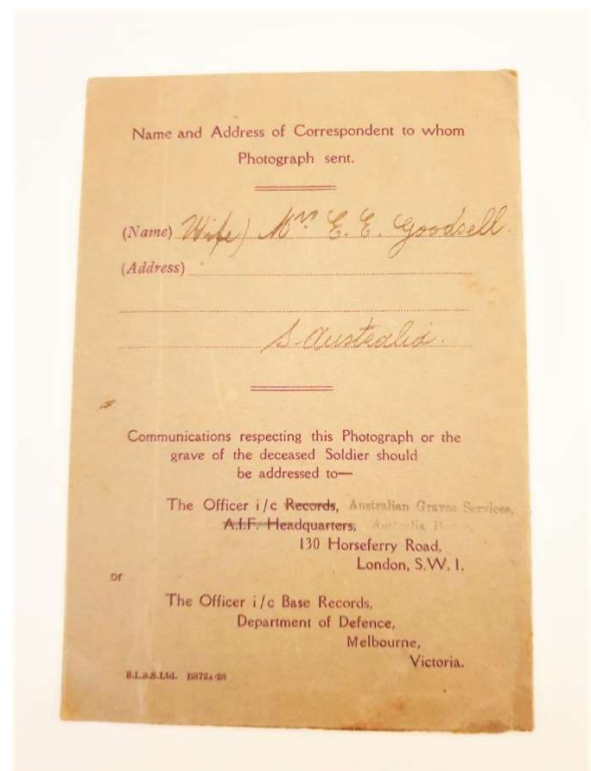 Name and Address of Correspondent to whom
Photograph sent.
(Name) Wife) Mrs E. E. Goodsell.
(Address)
S. Australia.
Communications respecting this Photograph or the
grave of the deceased Soldier should
be addressed to—
The Officer i/c Records, Australian Graves Services,
A.I.F. Headquarters, Australia
130 Horseferry Road,
London, S.W. 1.
or
The Officer i/c Base Records,
Department of Defence,
Melbourne,
Victoria.